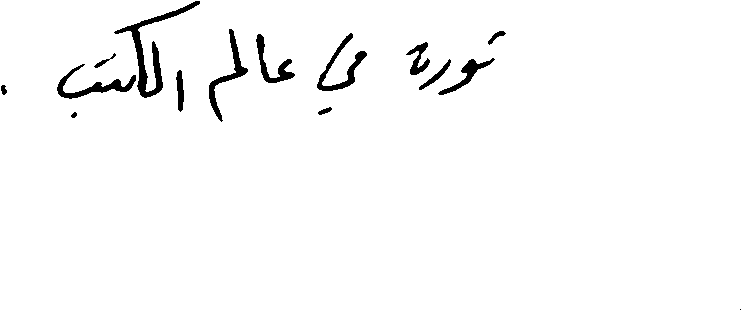 ثورة في عالم الكتب .